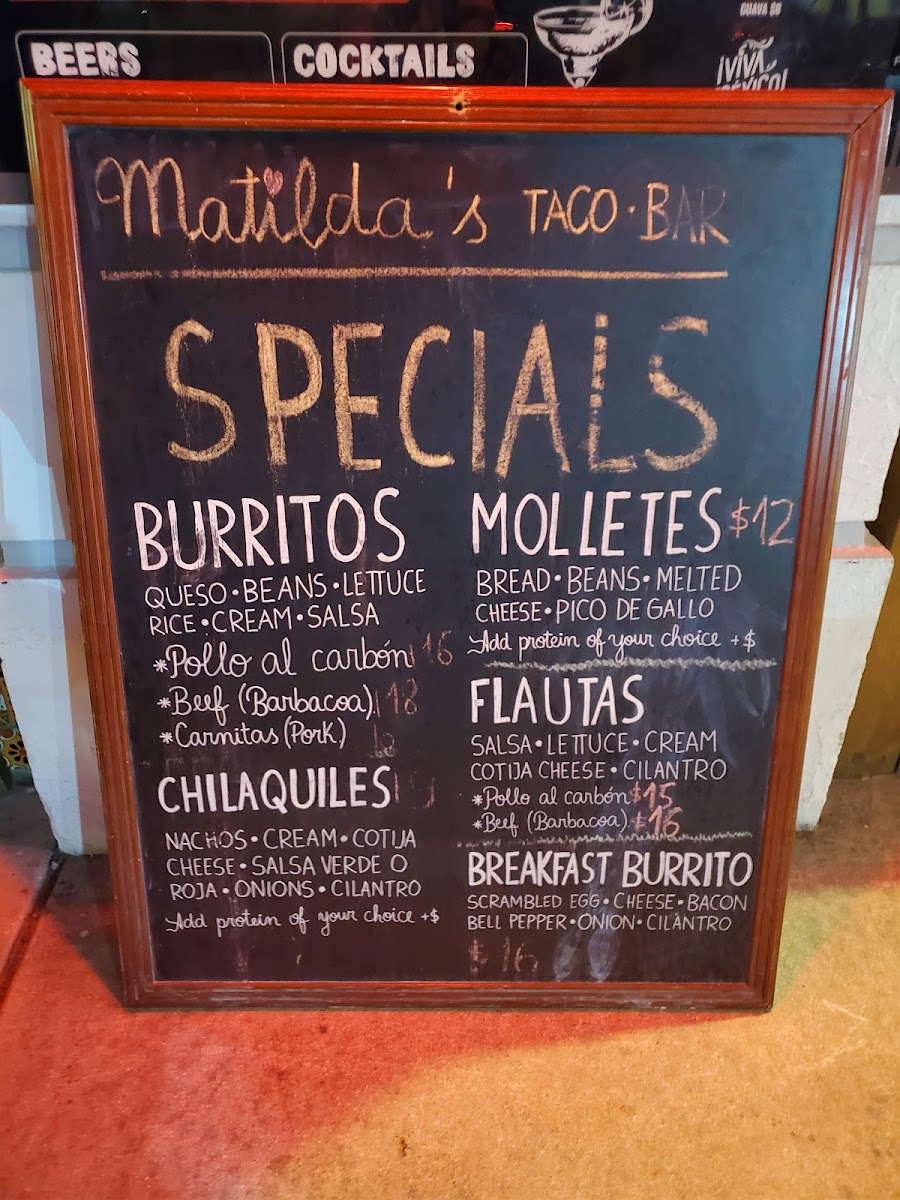 BEERS
COCKTAILS
GUAVA $8
¡VIVA
MÉXICO!
Matilda's TACO · BAR
SPECIALS
BURRITOS
QUESO • BEANS • LETTUCE
RICE • CREAM • SALSA
*Pollo al carbón 16
*Beef (Barbacoa) 18
*Carnitas (Pork)
CHILAQUILES
NACHOS • CREAM • COTIJA
CHEESE • SALSA VERDE O
ROJA • ONIONS • CILANTRO
Add protein of your choice +$
MOLLETES $12
BREAD • BEANS • MELTED
CHEESE • PICO DE GALLO
Add protein of your choice +$
FLAUTAS
SALSA • LETTUCE • CREAM
COTIJA CHEESE • CILANTRO
*Pollo al carbón $15
*Beef (Barbacoa) $16
BREAKFAST BURRITO
SCRAMBLED EGG • CHEESE • BACON
BELL PEPPER • ONION • CILANTRO
$16